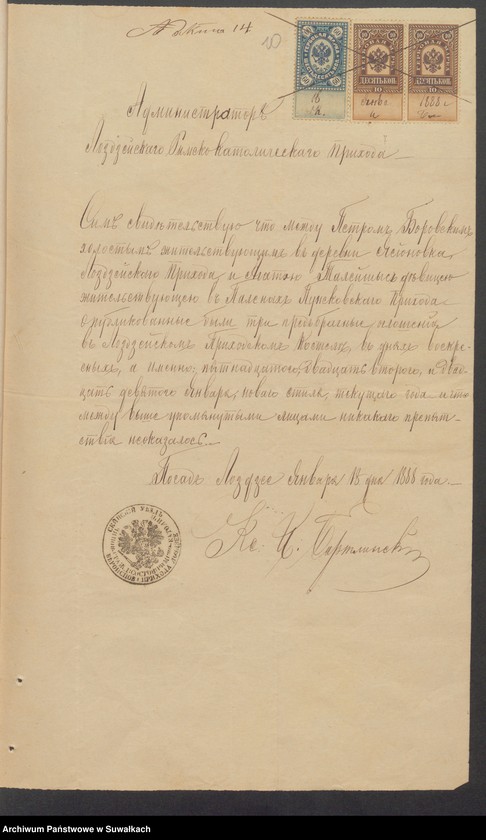 14
150
ДЕСЯТЬ КОП.
ДЕСЯТЬ КОП.
18
1888 г.
Администраторъ
Лоздзейскаго Римско католическаго Прихода
Симъ свидѣтельствую что между Петромъ Боровскимъ
холостымъ жительствующимъ въ деревни
Лоздзейскаго Прихода, и Агатою дѣвицею
жительствующею въ Прихода
опубликованные были три предбрачные оглашенія
въ Лоздзейскомъ Приходскомъ Костелѣ, въ дняхъ воскре-
сныхъ, а именно: пятнадцатого, двадцать второго, и двад-
цать девятого Января, новаго стиля, текущаго года и что
между выше упомянутыми лицами никакого препят-
ствія неоказалось.
Посадъ Лоздзее Января 18 дня 1888 года.
Кс.
Archiwum Państwowe w Suwałkach